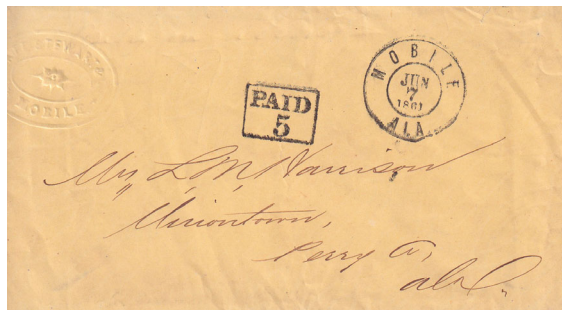 MOBILE
PAID
5
MOBILE
JUN
7
1861
ALA.
Mrs L. M. Harrison
Uniontown,
Perry Co,
Ala.